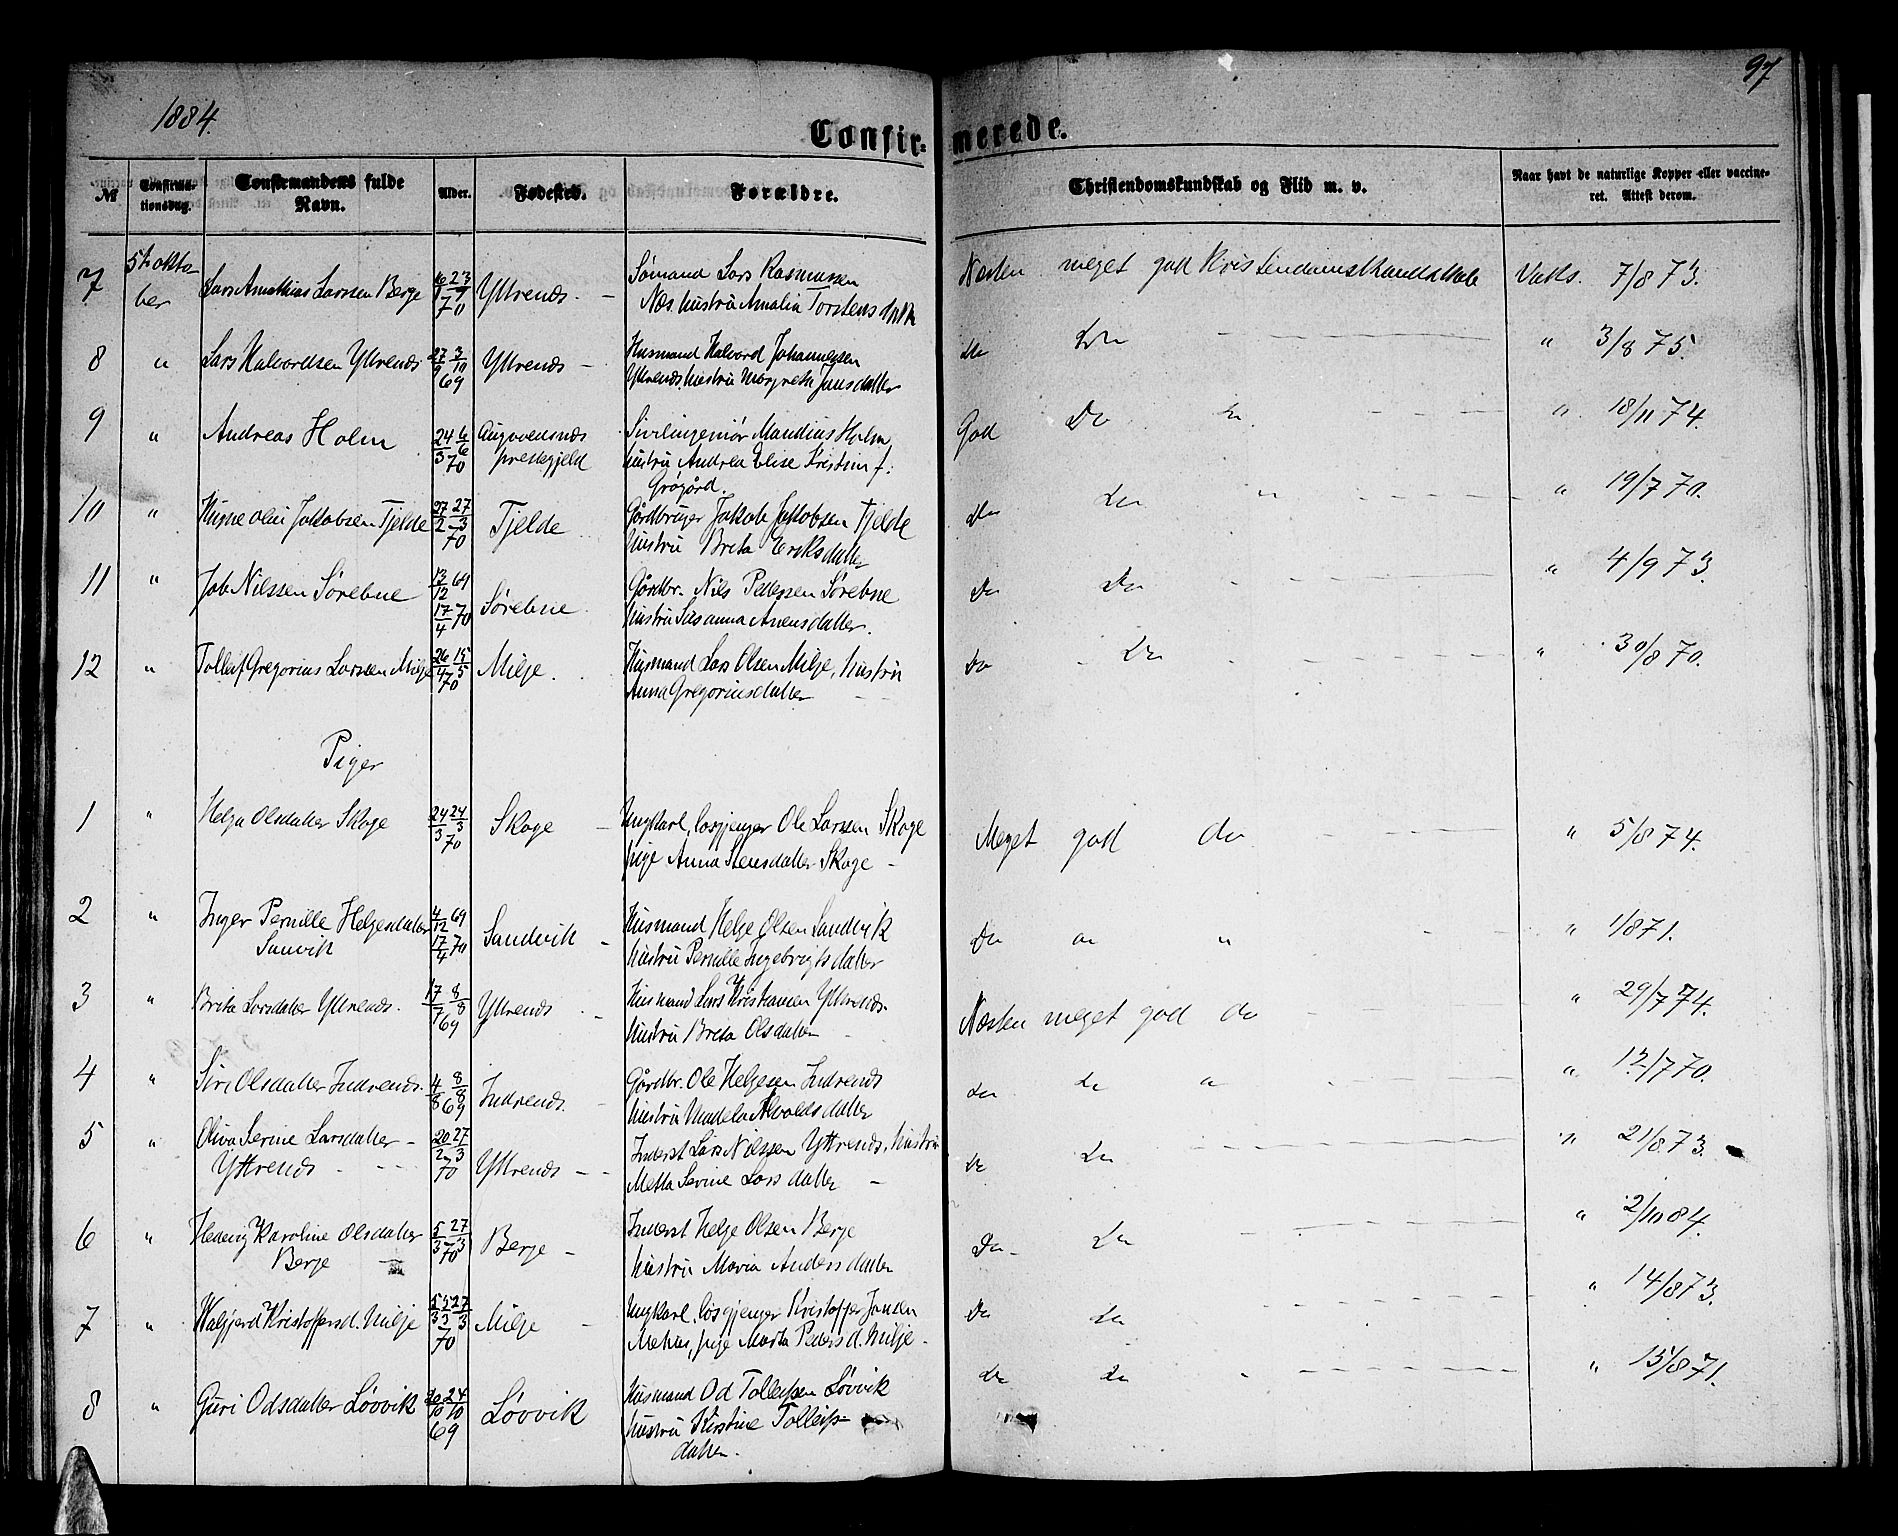 97
1884.
Confir- merede.
№ Confirma-tionsdag. Confirmandens fulde Navn. Alder. Fødested. Forældre. Christendomskundskab og Flid m. v. Naar havt de naturlige Kopper eller vaccine-ret. Attest derom.
7 5te okto- Sømand Lars Rasmussen
ber Lars Larsen Berge 70 Yttrenæs. Næs. hustru Amalia Torstensdatter Næsten meget god Kristendomskundskab Vatts. 7/8 73.
8 " Lars Halvordsen Yttrenæs 27/9 3/10 69 Yttrenæs Husmand Halvord Johannessen
Yttrenæs. hustru Margrete Jansdatter do do " 3/8 75.
9 " Andreas Holm 24/3 6/6 70 Sivilingeniør Holm
prestegjeld hustru Andrea Elise Kristine f: God Do " 18/11 74.
Grøgård.
10 " Jakobsen Tjelde 27/2 27/3 70 Tjelde Gårdbruger Jakob Jakobsen Tjelde
hustru Brita Eriksdatter Do do " " 19/7 70.
11 " Job Nilssen Sørebue 13/12 69 17/4 70 Sørebue Gårdbr. Nils Pedersen Sørebue
hustru Susanna Anensdatter. Do Do " 4/9 73.
12 " Tolleif Gregorius Larsen Milje 26/4 15/5 70 Milje. Husmand Lars Olsen Milje, hustru
Anna Gregoriusdatter Do Do " 30/8 70.
Piger
1 " Helga Olsdatter Skoge 24/3 24/3 70 Skoge Ungkarl, losgjenger Ole Larsen Skoge
pige Anna Stensdatter Skoge Meget god do " 5/8 74.
2 " Inger Pernille Helgesdatter 4/12 69 Husmand Helge Olsen Sandvik
Sanvik 17/4 70 Sandvik hustru Pernille Ingebrigtsdatter Do " " " 1/8 71.
3 " Brita Larsdatter Yttrenæs. 17/7 8/8 69 Yttrenæs Husmand Lars Kristiansen Yttrenæs.
hustru Brita Olsdatter Næsten meget god do " 29/7 74.
4 " Siri Olsdatter Indrenæs. 4/8 8/8 69 Indrenæs. Gårdbr. Ole Helgesen Indrenæs
hustru do do " " /7 70.
5 " Oliva Serine Larsdatter 20/2 27/3 Inderst Lars Nilssen Yttrenæs, hustru
Yttrenæs 70 Yttrenæs Metta Serine Larsdatter do do " 21/8 73.
6 " Hedevig Karoline Olsdatter 5/3 27/3 Inderst Helge Olsen Berge
Berge 70 Berge hustru Maria Andersdatter Do do " 2/10 84.
7 " Valgjerd Kristoffersd. Milje 27/3 70 Milje Ungkarl, losgjenger Kristoffer
pige Marta Pedersd. Milje Do do " 14/8 73.
8 " Guri Odsdatter Løvvik 20/10 24/10 69 Løvvik Husmand Od Tolleifsen Løvvik
hustru Kirstine Tolleifs-
datter. do do " 15/8 71.